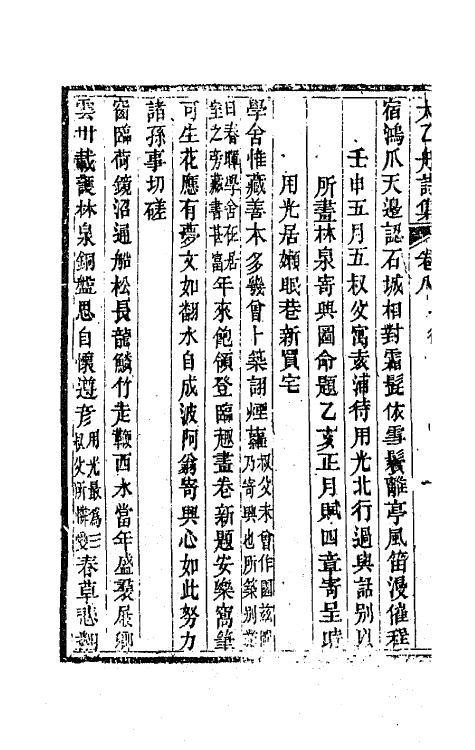 太乙舟詩集 卷八
宿鴻爪天邊認石城相對霜髭依雪鬢離亭風笛漫催程
壬申五月五叔父寓袁浦待用光北行過與話別以
所畫林泉寄興圖命題乙亥正月賦四章寄呈時
用光居嬾眠巷新買宅
學舍惟藏善本多幾曾卜築詡煙蘿叔父未曾作園茲圖乃寄興也所築別業
曰春暉學舍在居室之旁藏書甚富年來飽領登臨趣畫卷新題安樂窩筆
可生花應有夢文如翻水自成波阿翁寄興心如此努力
諸孫事切磋
窗臨荷鏡沼通船松長龍鱗竹走鞭西水當年盛裴展卿
雲卅載護林泉銅盤思自懷遵彥用光最為三叔父所憐愛春草悲